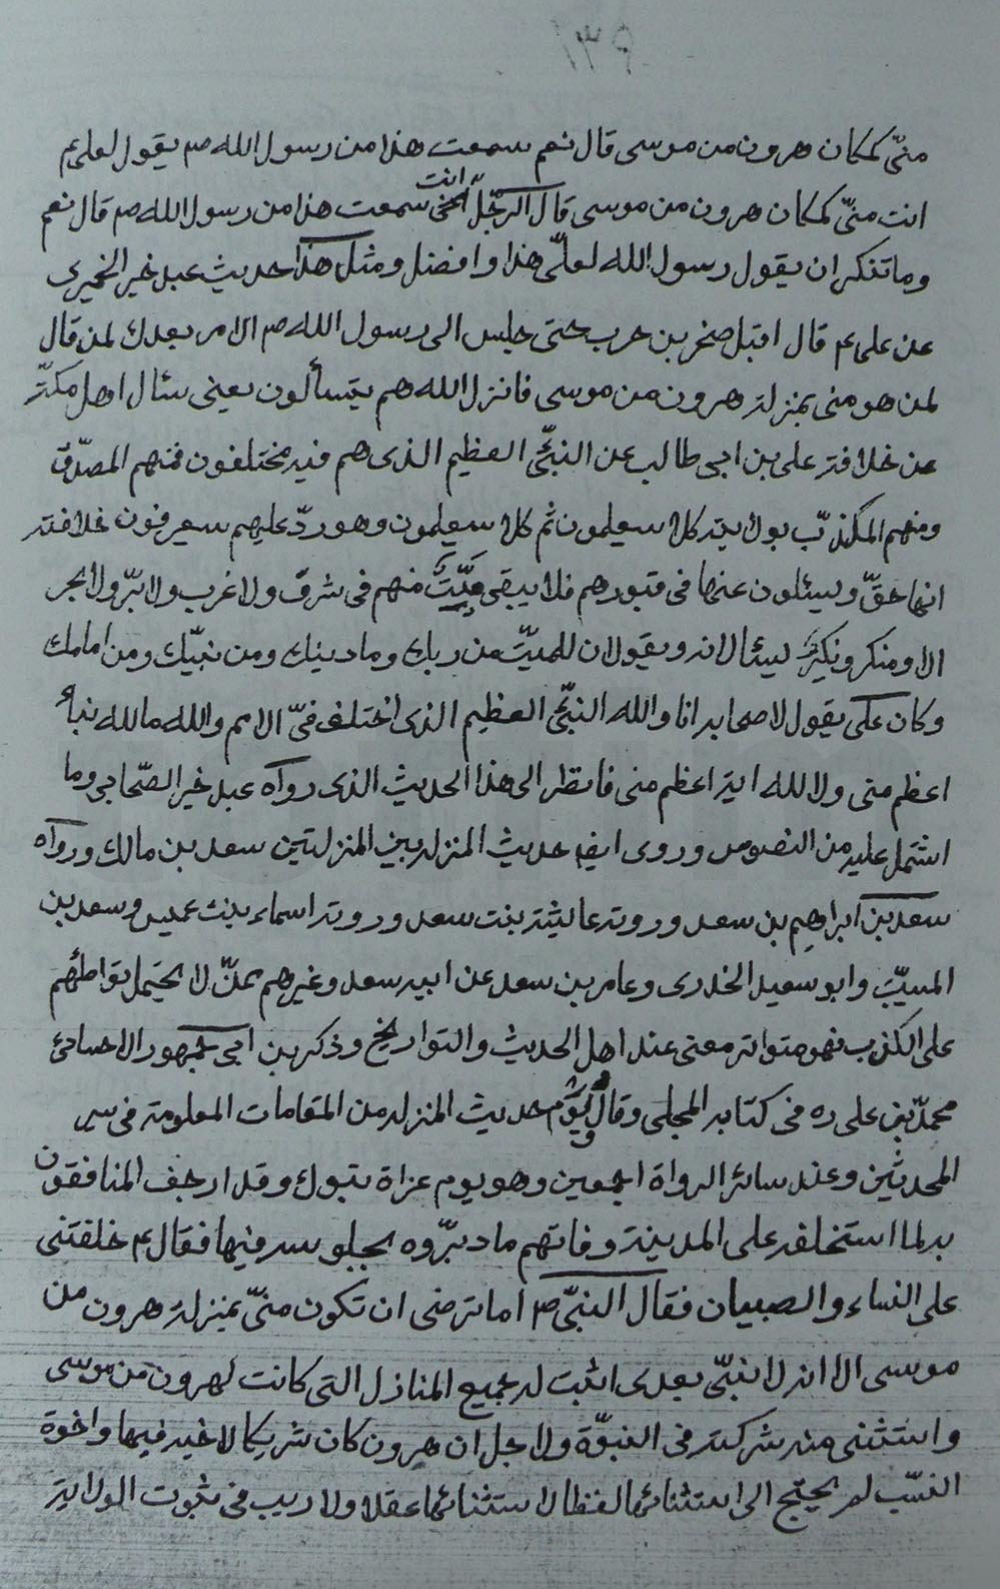 ١٣٩
منّي كمكان هرون من موسى قال نعم سمعت هذا من رسول الله ص يقول لعلي ع
انت منّي كمكان هرون من موسى قال الرّجل انت سمعت هذا من رسول الله ص قال نعم
وما تنكر ان يقول رسول الله لعليّ هذا وافضل ومثل هذا حديث عبد خير الخميرى
عن علي ع قال اقبل صخر بن حرب حتى جلس الى رسول الله ص الامر بعدك لمن قال
لمن هو منى بمنزلة هرون من موسى فانزل الله هم يتسألون يعنى سئال اهل مكّة
عن خلافة علي بن ابى طالب عن النبئ العظيم الذى هم فيه مختلفون فمنهم المصدّق
ومنهم المكذّب بولايته كلا سيعلمون ثم كلا سيعلمون وهو ردّ عليهم سيعرفون خلافته
انها حقّ وليسئلون عنها فى قبورهم فلا يبقى ميّت منهم فى شرق ولا غرب ولا برّ ولا بحر
الا ومنكر ونكير ليسئالانه ويقولان للميّت من ربك وما دينك ومن نبيّك ومن امامك
وكان علي يقول لاصحابه انا والله النبئ العظيم الذى اختلف فىّ الامم والله ما لله نباء
اعظم منى ولا لله اية اعظم منى فانظر الى هذا الحديث الذى رواه عبد خير الصّحابى وما
اشتمل عليه من النصوص وروى ايضا حديث المنزلة بين المنزلتين سعد بن مالك ورواه
سعد بن ابراهيم بن سعد وروته عايشة بنت سعد وروته اسماء بنت عميس وسعد بن
المسيّب وابو سعيد الخدرى وعامر بن سعد عن ابيه سعد وغيرهم ممّن لا يحتمل تواطئهم
على الكذب فهو متواتر معنى عند اهل الحديث والتواريخ وذكر بن ابى جمهور الاحسائى
محمد بن على ره فى كتابه المجلى وقال يوم حديث المنزلة من المقامات المعلومة فى سير
المحدثين وعند سائر الرواة اجمعين وهو يوم غزاة تبوك وقد ارجف المنافقون
به لما استخلفه على المدينة وفاتهم ما دبّروه بجلوسه فيها فقال ع خلفتنى
على النساء والصبيان فقال النبىّ ص اما ترضى ان تكون منىّ بمنزلة هرون من
موسى الا انه لا نبىّ بعدى اثبت له جميع المنازل التى كانت لهرون من موسى
واستثنى منه شركته فى النبوّة ولاجل ان هرون كان شريكا لاخيه فيها واخوة
النسّب لم يحتج الى استثنائها لفظا لاستثنائها عقلا ولا ريب فى ثبوت الولاية